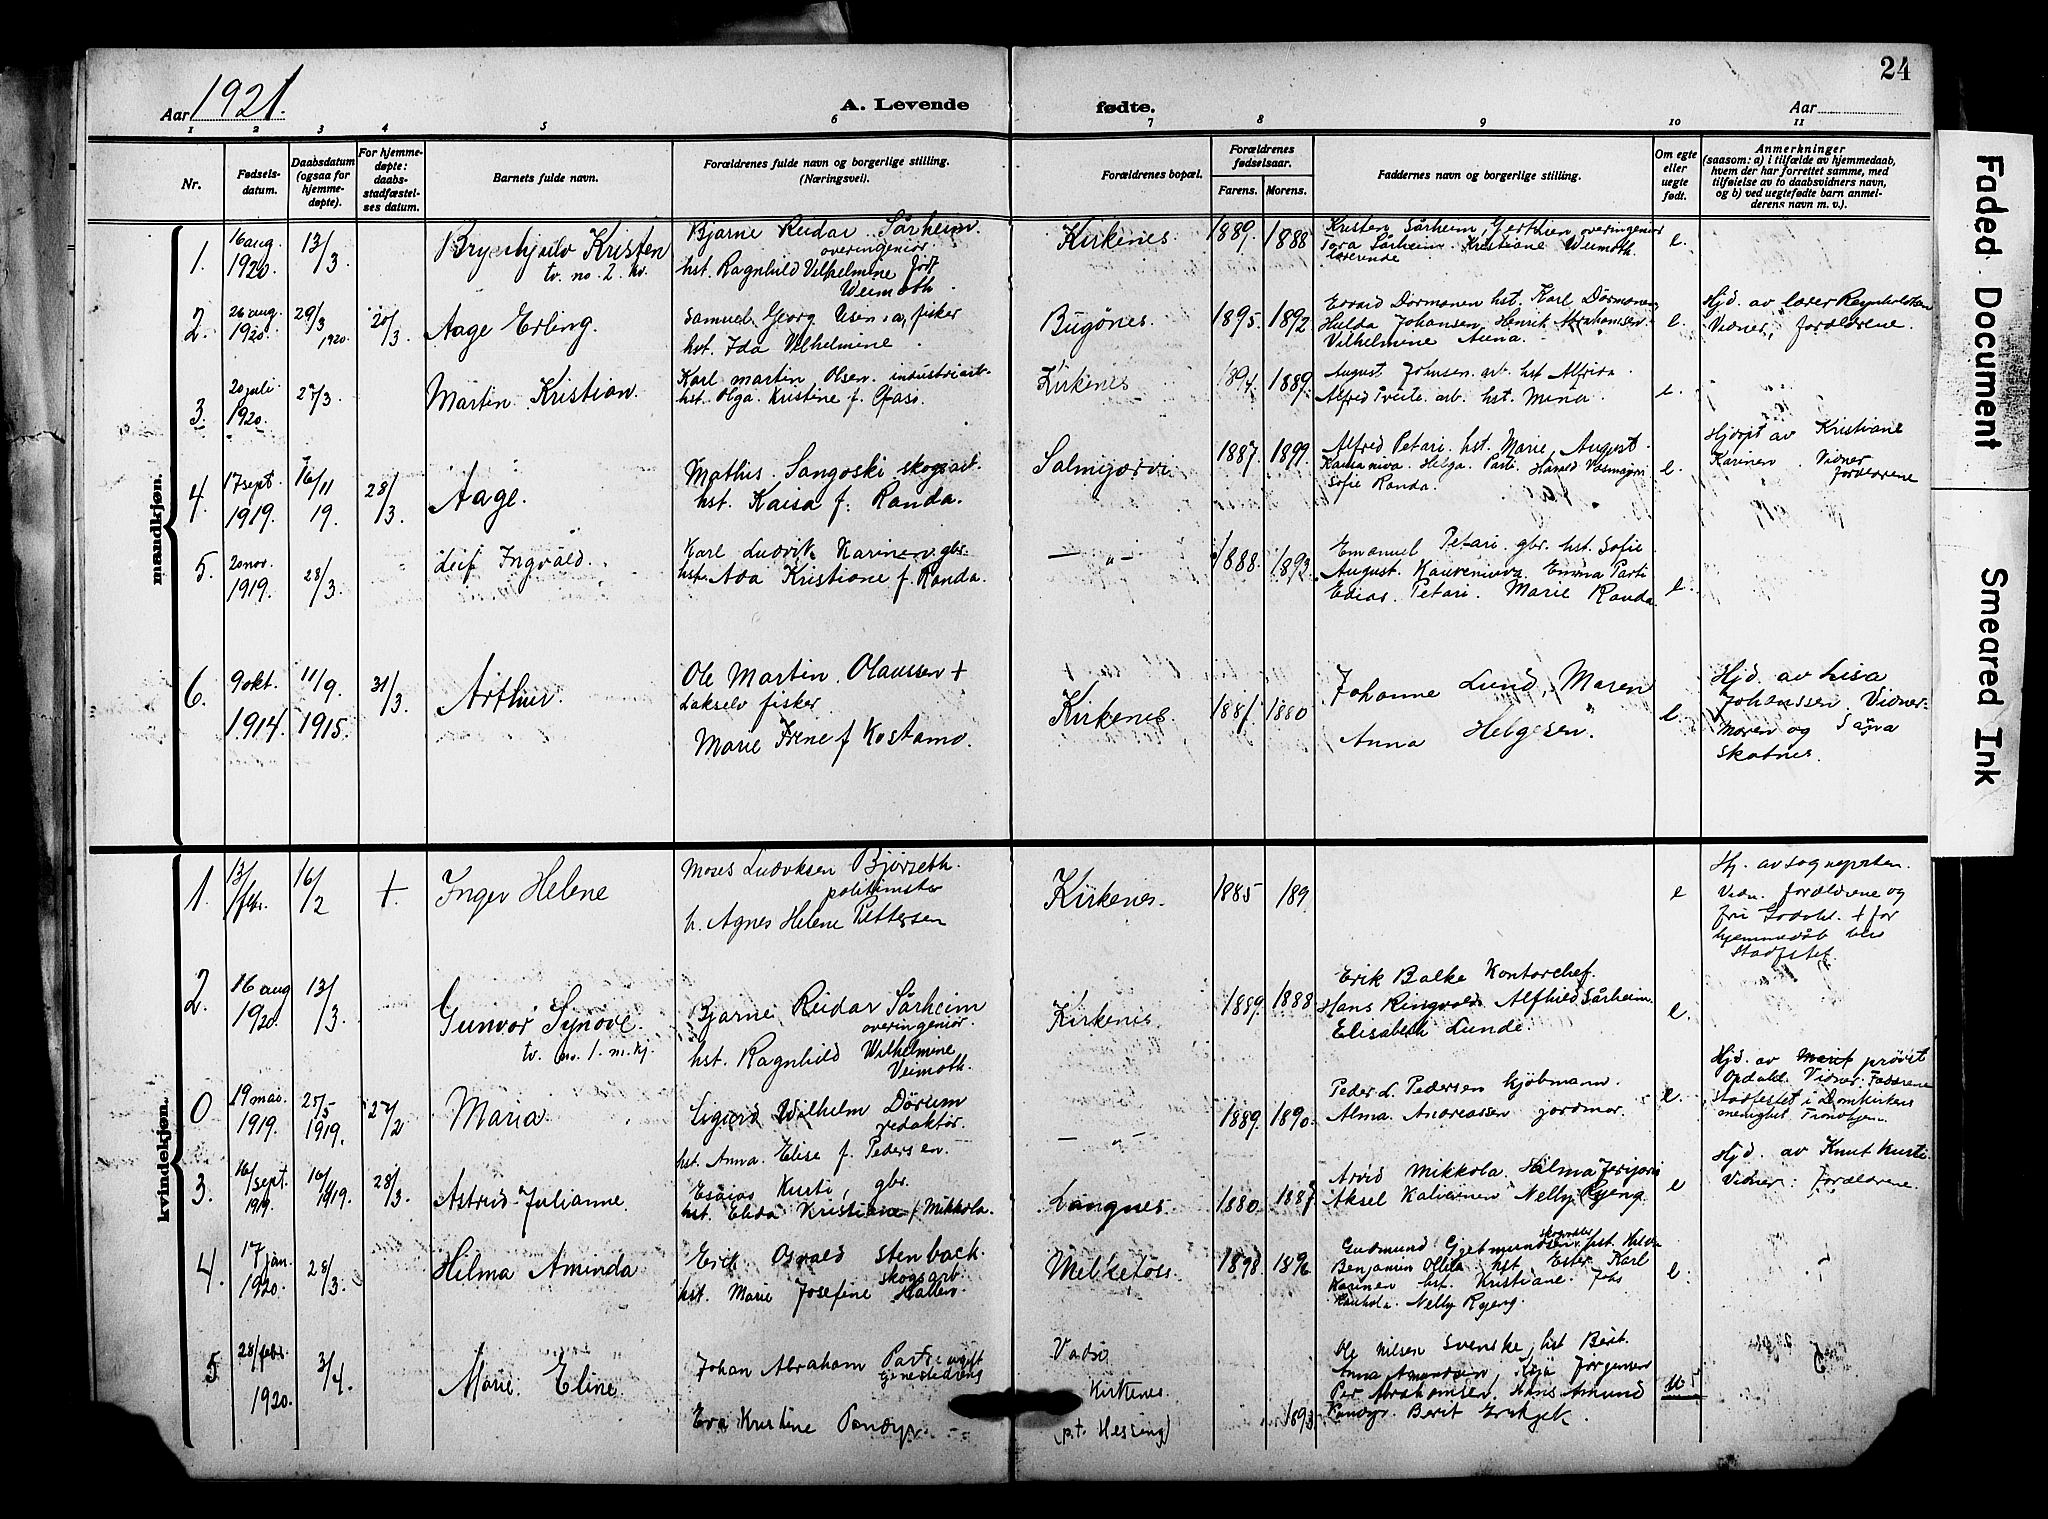 24
Aar 1921.
A. Levende fødte.
Aar
1 2 3 4 5 6 7 8 9 10 11
Nr.
Fødsels-
datum.
Daabsdatum
(ogsaa for
hjemme-
døpte).
For hjemme-
døpte:
daabs-
stadfæstel-
ses datum.
Barnets fulde navn.
Forældrenes fulde navn og borgerlige stilling.
(Næringsvei).
Forældrenes bopæl.
Forældrenes
fødselsaar.
Farens. Morens.
Faddernes navn og borgerlige stilling.
Om egte
eller
uegte
født.
Anmerkninger
(saasom: a) i tilfælde av hjemmedaab,
hvem der har forrettet samme, med
tilføielse av to daabsvidners navn,
og b) ved uegtefødte barn anmel-
derens navn m. v.).
mandkjøn.
1.
16 aug.
1920.
13/3.
Kristen
tv. no. 2. kv.
Bjarne Reidar Sårheim
overingeniør
hst. Ragnhild Vilhelmine født
Weimoth.
Kirkenes
1889. 1888
Kristen Sårheim, overingeniør
Tora Sårheim. Kristiane Weimoth.
e.
2.
26 aug.
1920.
29/3 1920.
20/3
Aage Erling.
Samuel Georg fisker
hst. Ida Vilhelmine
Bugönes.
1895 1892
Edvard Dörmænen hst. Karl Dörmænen
Hilda Johansen, Henrik Abrahamsen
Vilhelmine Anna.
e
Hjd. av lærer
Vidner, forældrene.
3.
20 juli
1920.
27/3.
Martin Kristian.
Karl Martin Olsen. industriarb.
hst. Olga Kristine f.
Kirkenes
1894. 1889.
August Johnsen. arb. hst Alfrida.
Alfred Tveite. arb. hst. Mina.
e.
4.
17 sept.
1919.
16/11
19.
28/3.
Aage.
Mathis Sangoski skogsarb.
hst. Kaisa f. Randa.
Salmijærvi
1887 1899
Alfred Petari. hst. Marie August
Helga Parti
Sofie Randa.
e
Hjdøpt av Kristiane
Karinen. Vidner
forældrene
5.
20 nov.
1919.
28/3.
Leif Ingvald.
Karl Ludvik Karinen gbr.
hst. Ada Kristiane f. Randa.
— " —
1888. 1893
Emanuel Petari. gbr. hst. Sofie
August Emma Parti
Petari. Marie Randa.
e.
6.
9 okt.
1914.
11/9
1915.
31/3.
Arthur.
Ole Martin Olaussen +
Lakselv fisker
Marie Irene f. Kostamo.
Kirkenes
1881. 1880
Johanne Lund, Maren
Anna Helgesen.
e.
Hjd. av Lisa
Johanssen. Vidner
Moren og
Skotnes.
kvindekjøn.
1.
13/febr.
16/2
+
Inger Helene
Moses Ludvksen Bjørseth.
politimster
h. Agnes Helene Pettersen
Kirkenes.
1885 189
e
Hj. av sogneprsten.
Vidn. forældrene og
+ for
hjemmedåb blev
Stadfstet.
2.
16 aug
1920.
13/3.
Gunvor Synøve.
tv. no. 1. m. kj.
Bjarne Reidar Sårheim
overingeniør.
hst. Ragnhild Wilhelmine
Veimoth.
Kirkenes.
1889. 1888
Erik Balke Kontorchef.
Hans Ringvold. Alfhild Sårheim.
Elisabeth Lunde.
e.
0
19 mai
1919.
25/5
1919.
27/2
Maria.
Sigurd Wilhelm Dörum
redaktör.
hst. Anna Elise f. Pedersen.
— " —
1889. 1890.
Peder L. Pedersen kjöbmann.
Alma Andreassen jordmor.
e.
Hjd. av prövst
Opdahl. Vidner. Fadderene
Stadfestet i Domkirkens
menighet Trondhjem.
3.
16/sept.
1919.
16/11 1919.
28/3.
Astrid Julianne.
Esaias Kusti, gbr.
hst. Elida Kristiane f. Mikkola.
Langnes.
1880. 1887
Arvid Mikkola. Hilma
Aksel Nelly Ryeng.
e
Hjd. av Knut Kusti.
Vidner: Forældrene.
4.
17 jan.
1920.
28/3.
Hilma Aminda
Erik Osvald Stenback.
skogsarb.
hst. Marie Josefine
1898. 1896
Gudmund hst. Hilda
Benjamin Ollila hst Ester Karl
Karinen hst. Kristiane.
Nelly Ryeng.
e.
5
28/febr.
1920.
3/4.
Marie Eline
Johan Abraham ugift
Eva Kristine
Vadsö
Kirkenes.
(p.t. Hessing)
1893
Ole Nilsen Svenske, hst Berit.
Anna Amundsen, Jörgensen
Per Abrahamsen, Hans Amund
Berit
u
Faded Document
Smeared Ink